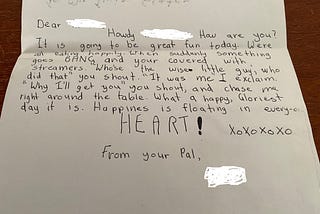 Dear
Howdy Haw are you?
It is going to be great fun today. Were
all eating happily when suddenly something
goes BANG and your covered with
streamers. "Whose the wise little guy, who
did that" you shout. "It was me I exclaim.
"Why I'll get you" you shout, and chase me
right around the table. What a happy, Gloriest
day it is. Happines is floating in every-o
HEART!
XoXoXoXo
From your Pal,